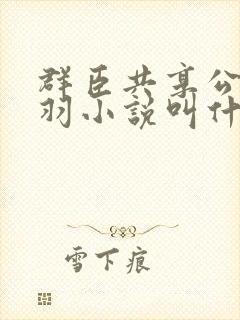 群臣共享公
羽小說叫什
雪下痕